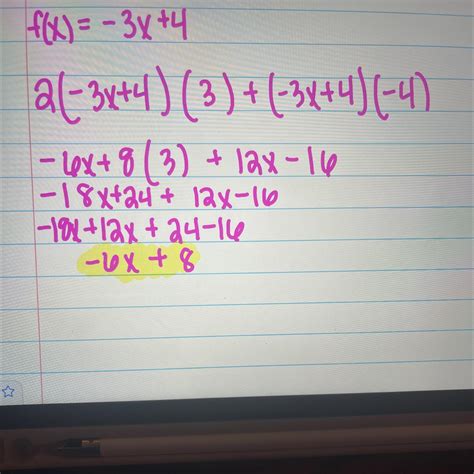 f(x) = -3x+4
2(-3x+4)(3)+(-3x+4)(-4)
-6x+8(3) + 12x-16
-18x+24+ 12x-16
-18x+12x+24-16
-6x + 8